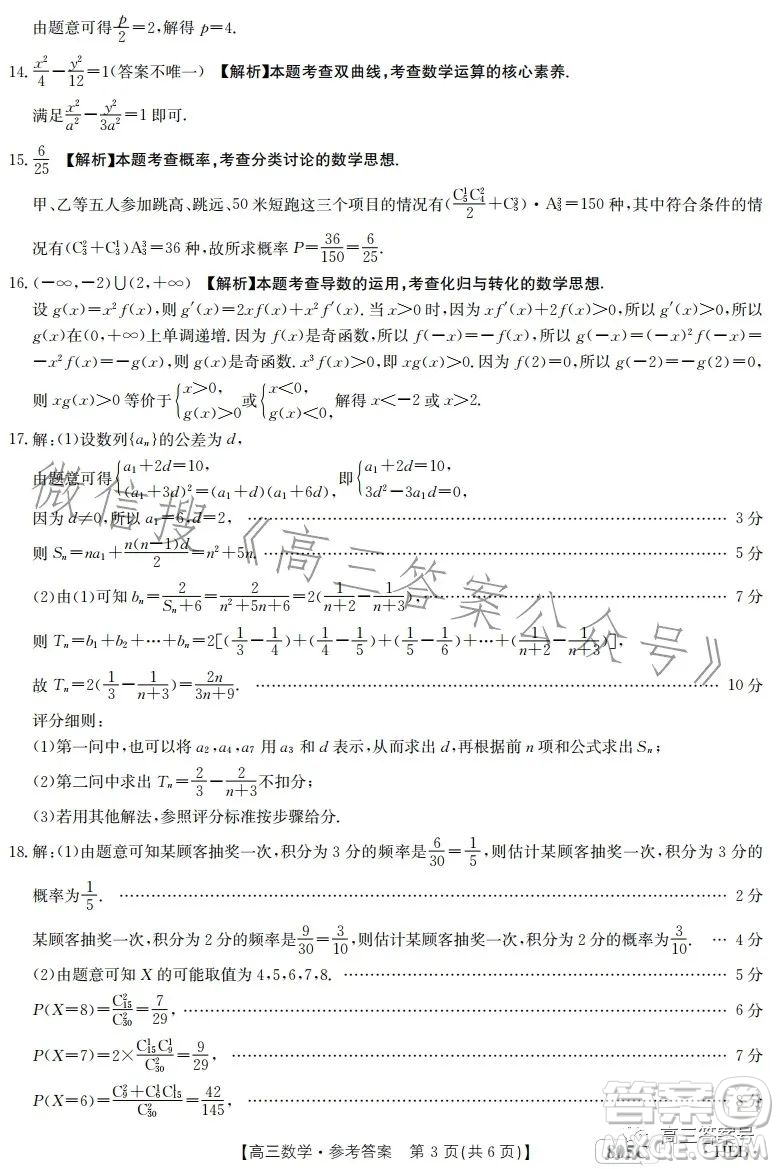 由题意可得p/2=2,解得 p=4.
14. x²/4-y²/12=1(答案不唯一) 【解析】本题考查双曲线,考查数学运算的核心素养.
满足x²/a²-y²/3a²=1即可.
15. 6/25 【解析】本题考查概率,考查分类讨论的数学思想.
甲、乙等五人参加跳高、跳远、50米短跑这三个项目的情况有(C₅¹C₄²/2+C₅³)·A₃³=150种,其中符合条件的情
况有(C₃²+C₃¹)A₃³=36种,故所求概率P=36/150=6/25.
16. (-∞,-2)∪(2,+∞) 【解析】本题考查导数的运用,考查化归与转化的数学思想.
设g(x)=x²f(x),则g′(x)=2xf(x)+x²f′(x).当x>0时,因为xf′(x)+2f(x)>0,所以g′(x)>0,所以
g(x)在(0,+∞)上单调递增.因为f(x)是奇函数,所以f(-x)=-f(x),所以g(-x)=(-x)²f(-x)=
-x²f(x)=-g(x),则g(x)是奇函数.x³f(x)>0,即xg(x)>0.因为f(2)=0,所以g(-2)=-g(2)=0,
则xg(x)>0等价于{x>0, g(x)>0或{x<0, g(x)<0,解得x<-2或x>2.
17. 解:(1)设数列{aₙ}的公差为d,
由题意可得{a₁+2d=10, (a₁+3d)²=(a₁+d)(a₁+6d),即{a₁+2d=10, 3d²-3a₁d=0,
因为d≠0,所以a₁=6,d=2, ………… 3分
则Sₙ=na₁+n(n-1)d/2=n²+5n. ………… 5分
(2)由(1)可知bₙ=2/(Sₙ+6)=2/(n²+5n+6)=2(1/(n+2)-1/(n+3)), ………… 7分
则Tₙ=b₁+b₂+…+bₙ=2[(1/3-1/4)+(1/4-1/5)+(1/5-1/6)+…+(1/(n+2)-1/(n+3))],
故Tₙ=2(1/3-1/(n+3))=2n/(3n+9). ………… 10分
评分细则:
(1)第一问中,也可以将a₂,a₄,a₇用a₃和d表示,从而求出d,再根据前n项和公式求出Sₙ;
(2)第二问中求出Tₙ=2/3-2/(n+3)不扣分;
(3)若用其他解法,参照评分标准按步骤给分.
18. 解:(1)由题意可知某顾客抽奖一次,积分为3分的频率是6/30=1/5,则估计某顾客抽奖一次,积分为3分的
概率为1/5. ………… 2分
某顾客抽奖一次,积分为2分的频率是9/30=3/10,则估计某顾客抽奖一次,积分为2分的概率为3/10. … 4分
(2)由题意可知X的可能取值为4,5,6,7,8. ………… 5分
P(X=8)=C₁₅²/C₃₀²=7/29, ………… 6分
P(X=7)=2×C₁₅¹C₉¹/C₃₀²=9/29, ………… 7分
P(X=6)=(C₉²+C₆¹C₁₅¹)/C₃₀²=42/145, ………… 8分
【高三数学·参考答案 第3页(共6页)】
微信搜《高三答案公众号》
高三答案号
答案圈